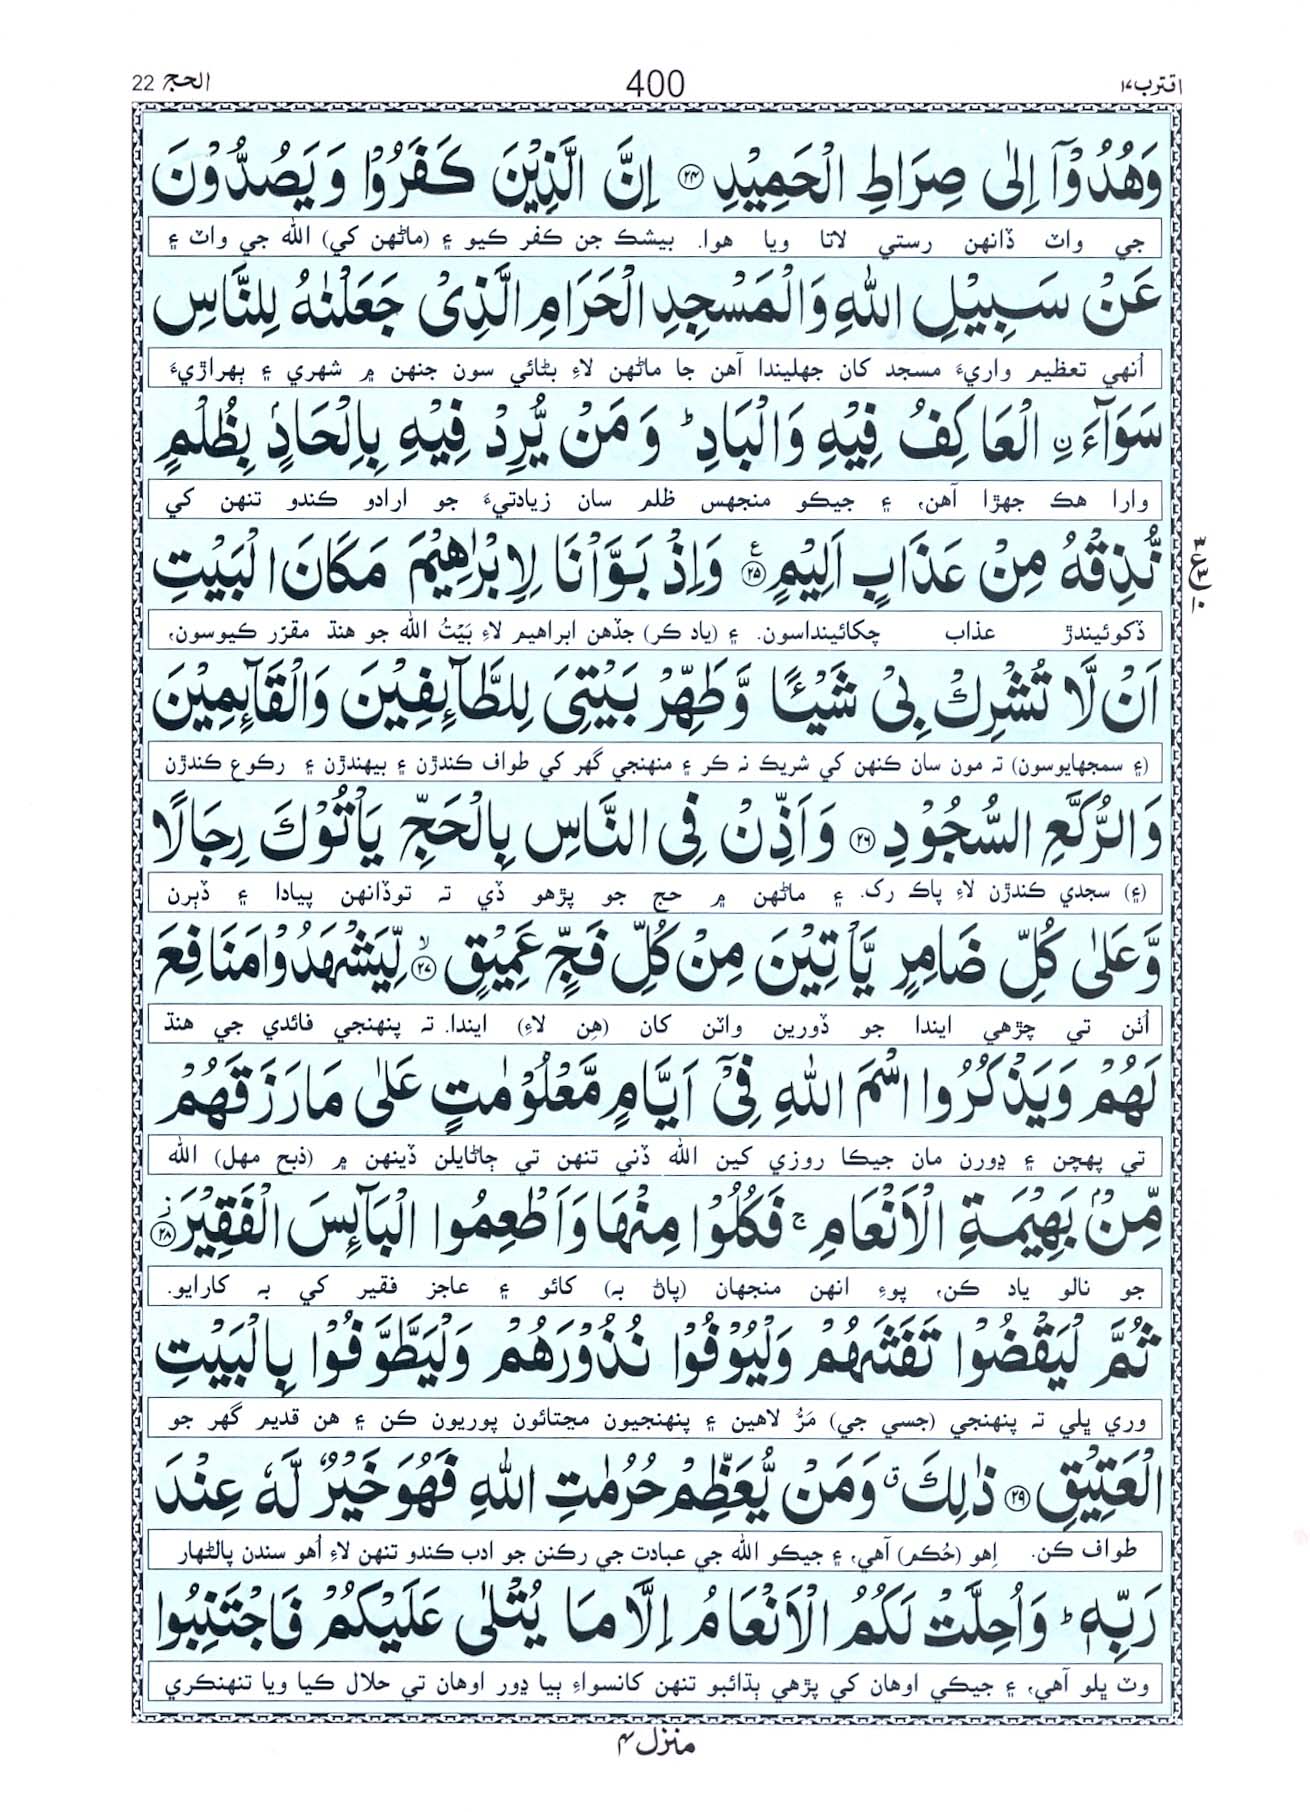 اقترب ۱۷
400
الحج 22
وَهُدُوْٓا اِلٰى صِرَاطِ الْحَمِيْدِ ۟۲۴ اِنَّ الَّذِيْنَ كَفَرُوْا وَيَصُدُّوْنَ
جي واٽ ڏانهن رستي لاتا ويا هوا. بيشڪ جن ڪفر ڪيو ۽ (ماڻهن کي) الله جي واٽ ۽
عَنْ سَبِيْلِ اللّٰهِ وَالْمَسْجِدِ الْحَرَامِ الَّذِىْ جَعَلْنٰهُ لِلنَّاسِ
اُنهي تعظيم واريءَ مسجد کان جهليندا آهن جا ماڻهن لاءِ بڻائي سون جنهن ۾ شهري ۽ ٻهراڙيءَ
سَوَآءَ ۨ الْعَاكِفُ فِيْهِ وَالْبَادِ ؕ وَمَنْ يُّرِدْ فِيْهِ بِاِلْحَادٍۭ بِظُلْمٍ
وارا هڪ جهڙا آهن، ۽ جيڪو منجهس ظلم سان زيادتيءَ جو ارادو ڪندو تنهن کي
نُّذِقْهُ مِنْ عَذَابٍ اَلِيْمٍ ۟۲۵ ع وَاِذْ بَوَّاْنَا لِاِبْرٰهِيْمَ مَكَانَ الْبَيْتِ
ڏکوئيندڙ عذاب چکائينداسون. ۽ (ياد ڪر) جڏهن ابراهيم لاءِ بَيْتُ الله جو هنڌ مقرّر ڪيوسون،
اَنْ لَّا تُشْرِكْ بِىْ شَيْـًٔا وَّطَهِّرْ بَيْتِىَ لِلطَّآئِفِيْنَ وَالْقَآئِمِيْنَ
(۽ سمجهايوسون) تہ مون سان ڪنهن کي شريڪ نہ ڪر ۽ منهنجي گهر کي طواف ڪندڙن ۽ بيهندڙن ۽ رڪوع ڪندڙن
وَالرُّكَّعِ السُّجُوْدِ ۟۲۶ وَاَذِّنْ فِى النَّاسِ بِالْحَجِّ يَاْتُوْكَ رِجَالًا
(۽) سجدي ڪندڙن لاءِ پاڪ رک. ۽ ماڻهن ۾ حج جو پڙهو ڏي تہ توڏانهن پيادا ۽ ڏٻرن
وَّعَلٰى كُلِّ ضَامِرٍ يَّاْتِيْنَ مِنْ كُلِّ فَجٍّ عَمِيْقٍ ۟ۙ۲۷ لِّيَشْهَدُوْا مَنَافِعَ
اُٺن تي چڙهي ايندا جو ڏورين واٽن کان (هِن لاءِ) ايندا. تہ پنهنجي فائدي جي هنڌ
لَهُمْ وَيَذْكُرُوا اسْمَ اللّٰهِ فِىْٓ اَيَّامٍ مَّعْلُوْمٰتٍ عَلٰى مَا رَزَقَهُمْ
تي پهچن ۽ ڍورن مان جيڪا روزي کين الله ڏني تنهن تي ڄاڻايلن ڏينهن ۾ (ذبح مهل) الله
مِّنْۢ بَهِيْمَةِ الْاَنْعَامِ ۚ فَكُلُوْا مِنْهَا وَاَطْعِمُوا الْبَآئِسَ الْفَقِيْرَ ۟ؗ۲۸
جو نالو ياد ڪن، پوءِ انهن منجهان (پاڻ بہ) کائو ۽ عاجز فقير کي بہ کارايو.
ثُمَّ لْيَقْضُوْا تَفَثَهُمْ وَلْيُوْفُوْا نُذُوْرَهُمْ وَلْيَطَّوَّفُوْا بِالْبَيْتِ
وري ڀلي تہ پنهنجي (جسي جي) مَرُ لاهين ۽ پنهنجيون مڃتائون پوريون ڪن ۽ هن قديم گهر جو
الْعَتِيْقِ ۟۲۹ ذٰلِكَ ۗ وَمَنْ يُّعَظِّمْ حُرُمٰتِ اللّٰهِ فَهُوَ خَيْرٌ لَّهٗ عِنْدَ
طواف ڪن. اِهو (حُڪم) آهي، ۽ جيڪو الله جي عبادت جي رڪنن جو ادب ڪندو تنهن لاءِ اُهو سندن پالڻهار
رَبِّهٖ ؕ وَاُحِلَّتْ لَكُمُ الْاَنْعَامُ اِلَّا مَا يُتْلٰى عَلَيْكُمْ فَاجْتَنِبُوا
وٽ ڀلو آهي، ۽ جيڪي اوهان کي پڙهي ٻڌائبو تنهن کانسواءِ ٻيا ڍور اوهان تي حلال ڪيا ويا تنهنڪري
منزل ۴